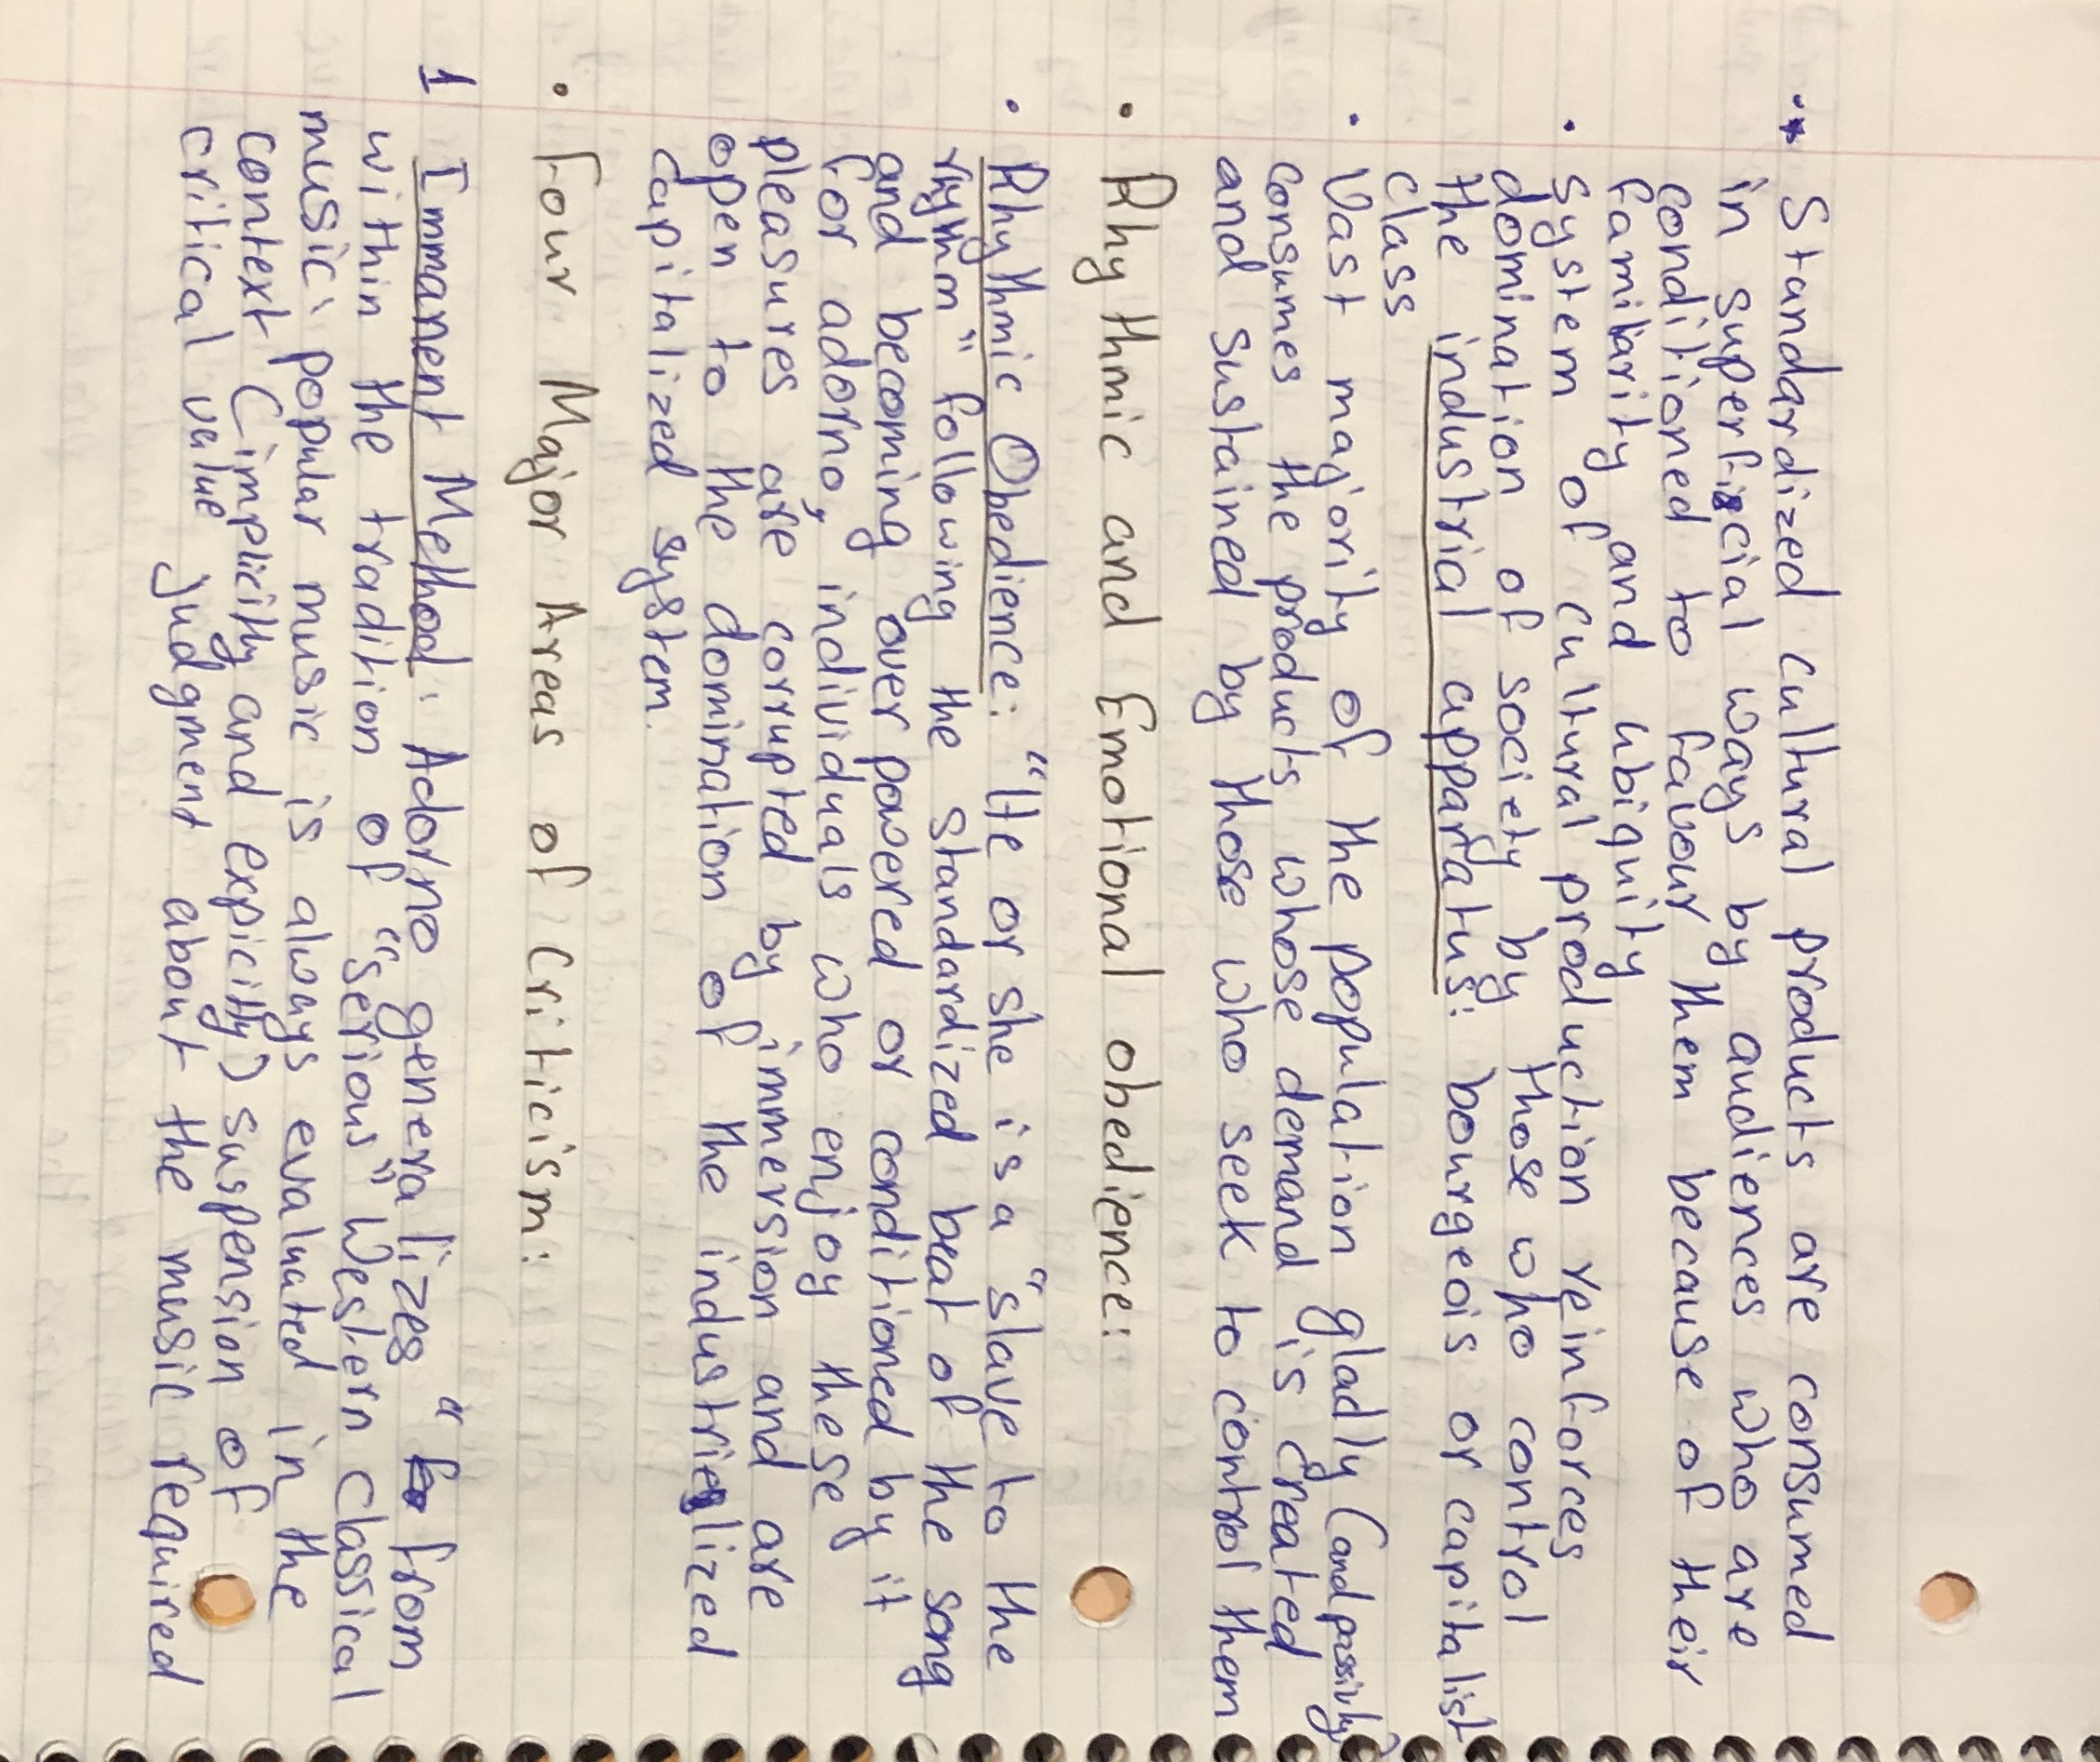 • Standardized cultural products are consumed
in superficial ways by audiences who are
conditioned to favour them because of their
familiarity and ubiquity
• system of cultural production reinforces
domination of society by those who control
the industrial apparatus: bourgeois or capitalist
class
• Vast majority of the population gladly (and passively)
consumes the products whose demand is created
and sustained by those who seek to control them
• Rhythmic and Emotional obedience:
• Rhythmic Obedience: "He or she is a "slave to the
rhythm" following the standardized beat of the song
and becoming overpowered or conditioned by it
for adorno, individuals who enjoy these
pleasures are corrupted by immersion and are
open to the domination of the industrialized
capitalized system.
• Four Major Areas of Criticism:
1 Immanent Method: Adorno generalizes " from
within the tradition of "serious" Western classical
music; popular music is always evaluated in the
context (implicitly and expicitly) suspension of
critical value judgment about the music required